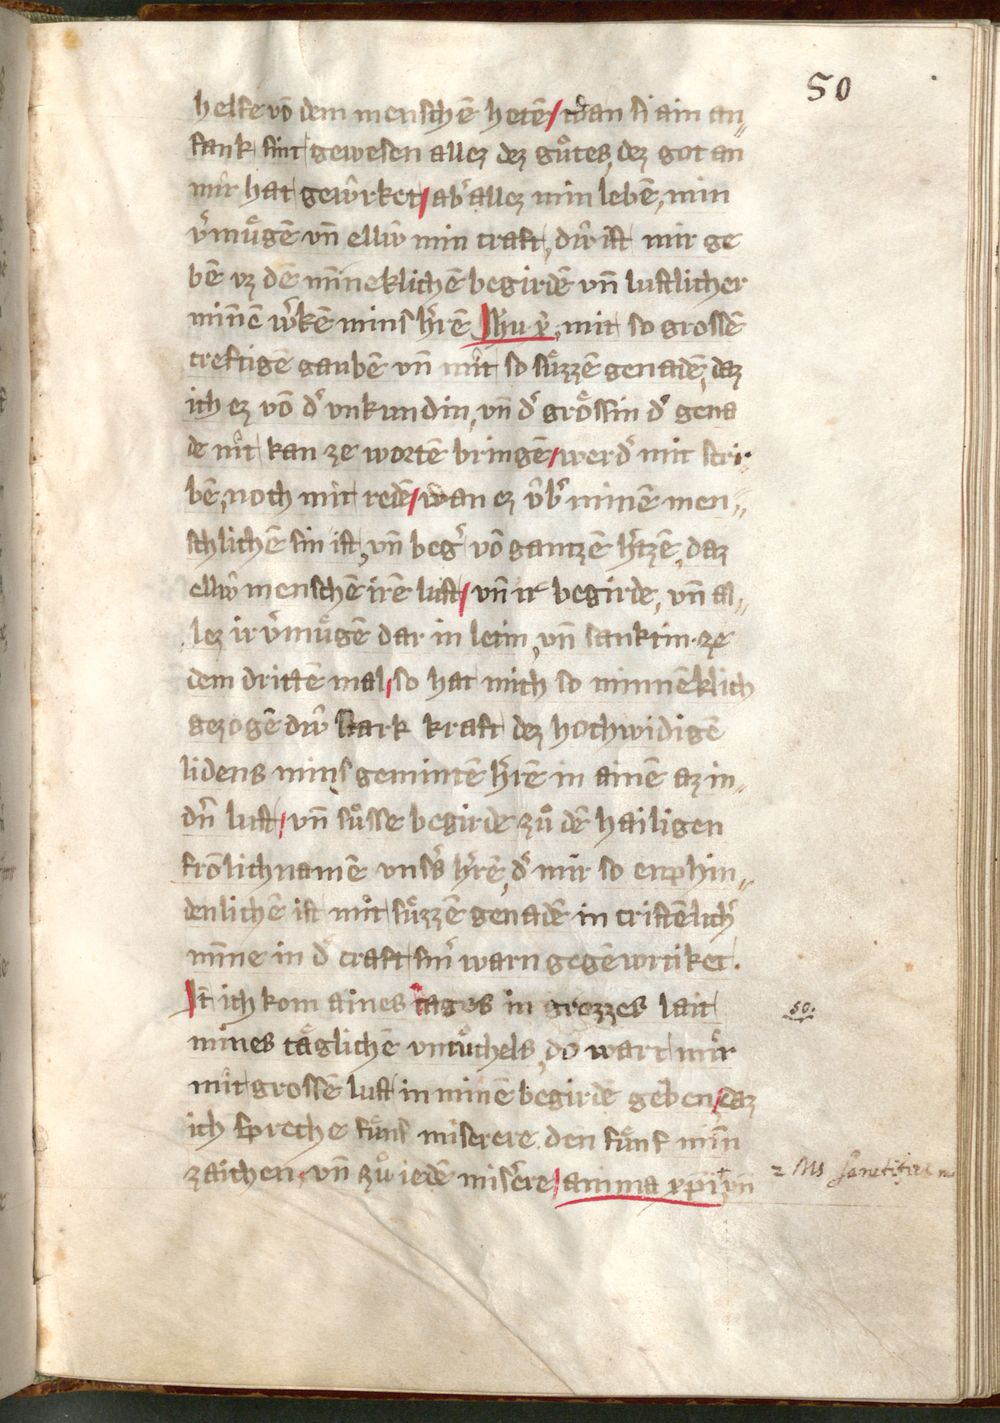 50
helfe vō dem menschē hetē / wan si ain an„
fank sint gewesen allez dez gůtes, dez got an
mir hat gewürket / ab᷑ allez min lebē, min
v᷑mügē vn̄ elliv̂ min craft, div̂ ist mir ge
bē vz dē mīneklichē begirdē vn̄ lustlicher
minnē w᷑kē mins h᷑rē Jhu xp̄i, mit so grossē
creftigē gaubē vn̄ mit so sůzzē genadē, daz
ich ez vō d᷑ vnkundin, vn̄ d᷑ grössin d᷑ gena
de nit kan ze wortē bringē / werd᷑ mit scri-
bē, noch mit redē / wan ez v̂b᷑ minē men„
schlichē sin ist, vn̄ beg᷑ vō gantzē h᷑tzē, daz
elliv̂ menschē irē lust / vn̄ ir begirde, vn̄ al„
lez ir v᷑mügē dar in leitin, vn̄ sanktin. ze
dem drittē mal / so hat mich so minnēklich
gezogē div̂ stark kraft dez hochwidigē
lidens mins gemintē h᷑rē in ainē azin„
dn̄ lust / vn̄ süsse begirde zů dē hailigen
frōlichnamē vns᷑s h᷑rē, d᷑ mir so enphin„
denlichē ist mit süzzē genadē in cristēlich᷑
mīne in d᷑ craft sin᷑ warn gegēwrtiket.
It̄ ich kom aines tages in grozzes lait
mines täglichē vntůchels, do wart mir
mit grossē lust in minē begirdē geben / daz
ich spreche fünf miserere den fünf minn
zaichen / vn̄ zů iedē mis᷑ere / anima xpi, vn̄
50.
2 Ms Sanctifica me